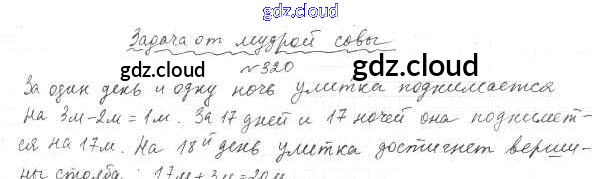 gdz.cloud
Задача от мудрой совы
№320
gdz.cloud
gdz.cloud
За один день и одну ночь улитка поднимается
на 3м-2м=1м. За 17 дней и 17 ночей она поднимет-
ся на 17м. На 18й день улитка достигнет верши-
ны столба: 17м+3м=20м